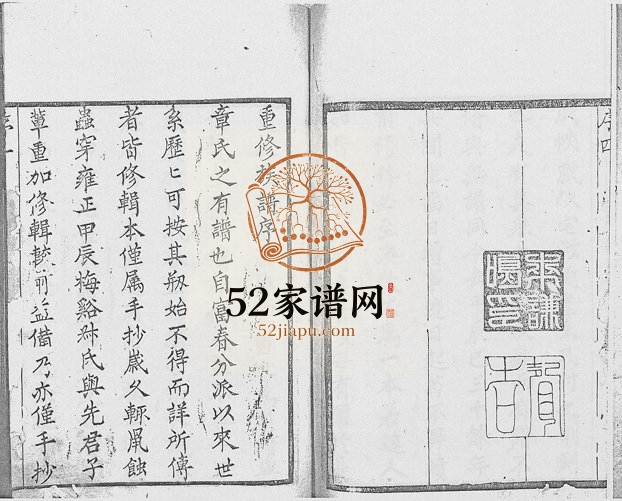 序四
重修族譜序
章氏之有譜也自富春分派以來世
系歷〻可按其刱始不得而詳所傳
者皆修輯本僅属手抄歲久輒鼠蝕
蟲穿雍正甲辰梅谿叔氏與先君子
輩重加修輯較前益備乃亦僅手抄
52家谱网
52jiapu.com